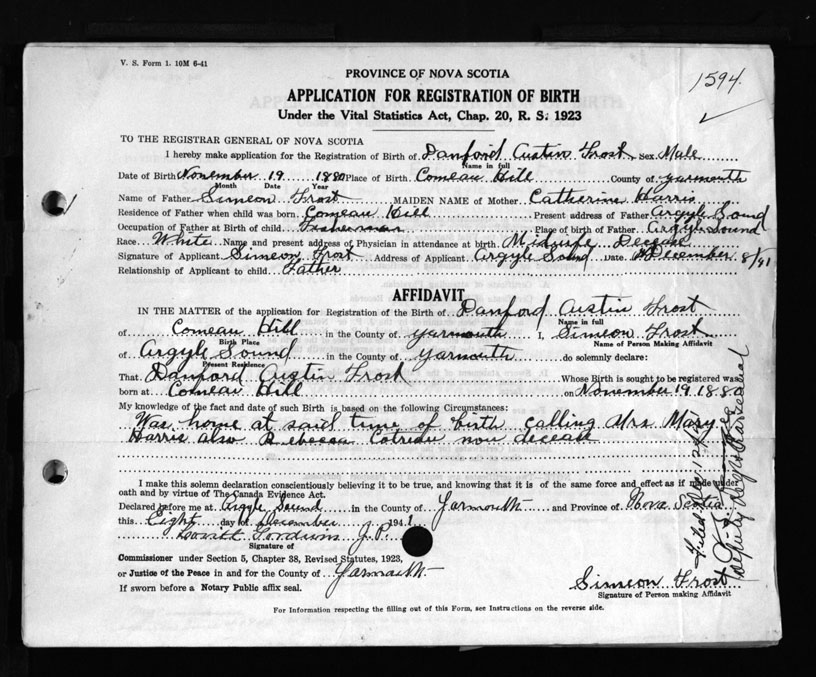 V. S. Form 1. 10M 6-41
1594.
PROVINCE OF NOVA SCOTIA
APPLICATION FOR REGISTRATION OF BIRTH
Under the Vital Statistics Act, Chap. 20, R. S. 1923
TO THE REGISTRAR GENERAL OF NOVA SCOTIA
I hereby make application for the Registration of Birth of Danford Austin Frost Sex Male
Name in full
Date of Birth November 19 1880 Place of Birth Comeau Hill County of Yarmouth
Month Date Year
Name of Father Simeon Frost MAIDEN NAME of Mother Catherine Harris
Residence of Father when child was born Comeau Hill Present address of Father Argyle Sound
Occupation of Father at Birth of child Fisherman Place of birth of Father Argyle Sound
Race White Name and present address of Physician in attendance at birth Midwife Decease
Signature of Applicant Simeon Frost Address of Applicant Argyle Sound Date December 8/41
Relationship of Applicant to child Father
AFFIDAVIT
IN THE MATTER of the application for Registration of the Birth of Danford Austin Frost
Name in full
of Comeau Hill in the County of Yarmouth I, Simeon Frost
Birth Place Name of Person Making Affidavit
of Argyle Sound in the County of Yarmouth do solemnly declare:
Present Residence
That Danford Austin Frost Whose Birth is sought to be registered was
born at Comeau Hill on November 19 1880
My knowledge of the fact and date of such Birth is based on the following Circumstances:
Was home at said time of birth calling Mrs Mary
Harris also Rebecca Cotreau now decease
I make this solemn declaration conscientiously believing it to be true, and knowing that it is of the same force and effect as if made under
oath and by virtue of The Canada Evidence Act.
Declared before me at Argyle Sound in the County of Yarmouth and Province of Nova Scotia
this Eight day of December 1941
Lovitt Goodwin J.P.
Signature of
Commissioner under Section 5, Chapter 38, Revised Statutes, 1923,
or Justice of the Peace in and for the County of Yarmouth
If sworn before a Notary Public affix seal.
Simeon Frost
Signature of Person making Affidavit
For Information respecting the filling out of this Form, see Instructions on the reverse side.
Filed
Deputy Registrar General